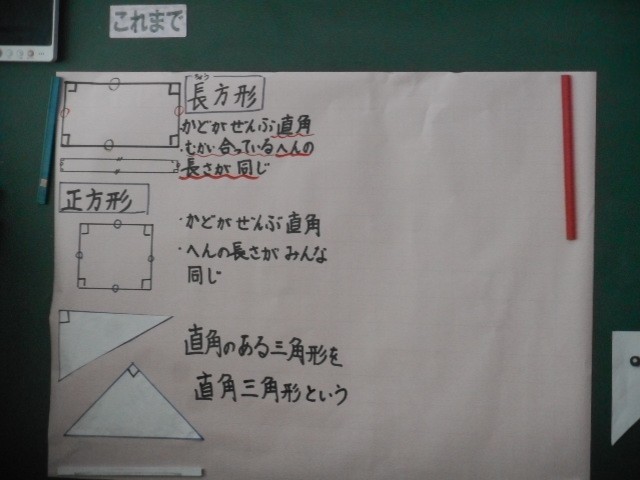 これまで
ちょう
長方形
かどがぜんぶ直角
・むかい合っているへんの
長さが同じ
正方形
・かどがぜんぶ直角
・へんの長さがみんな
同じ
直角のある三角形を
直角三角形という